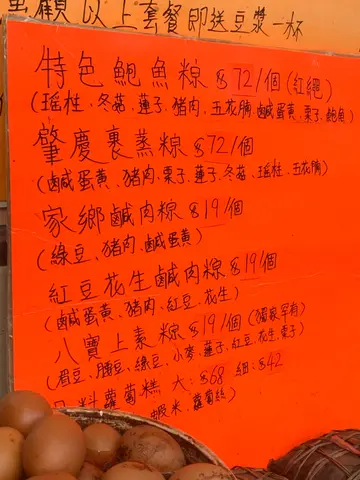 惠顧以上套餐即送豆漿一杯
特色鮑魚粽 $72/個 (紅繩)
(瑤柱、冬菇、蓮子、豬肉、五花腩、鹹蛋黃、栗子、鮑魚)
肇慶裹蒸粽 $72/個
(鹹蛋黃、豬肉、栗子、蓮子、冬菇、瑤柱、五花腩)
家鄉鹹肉粽 $19/個
(綠豆、豬肉、鹹蛋黃)
紅豆花生鹹肉粽 $19/個
(鹹蛋黃、豬肉、紅豆、花生)
八寶上素粽 $19/個 (獨家罕有)
(眉豆、腰豆、綠豆、小麥、蓮子、紅豆、花生、栗子)
料蘿蔔糕 大:$68 細:$42
蝦米、蘿蔔絲)